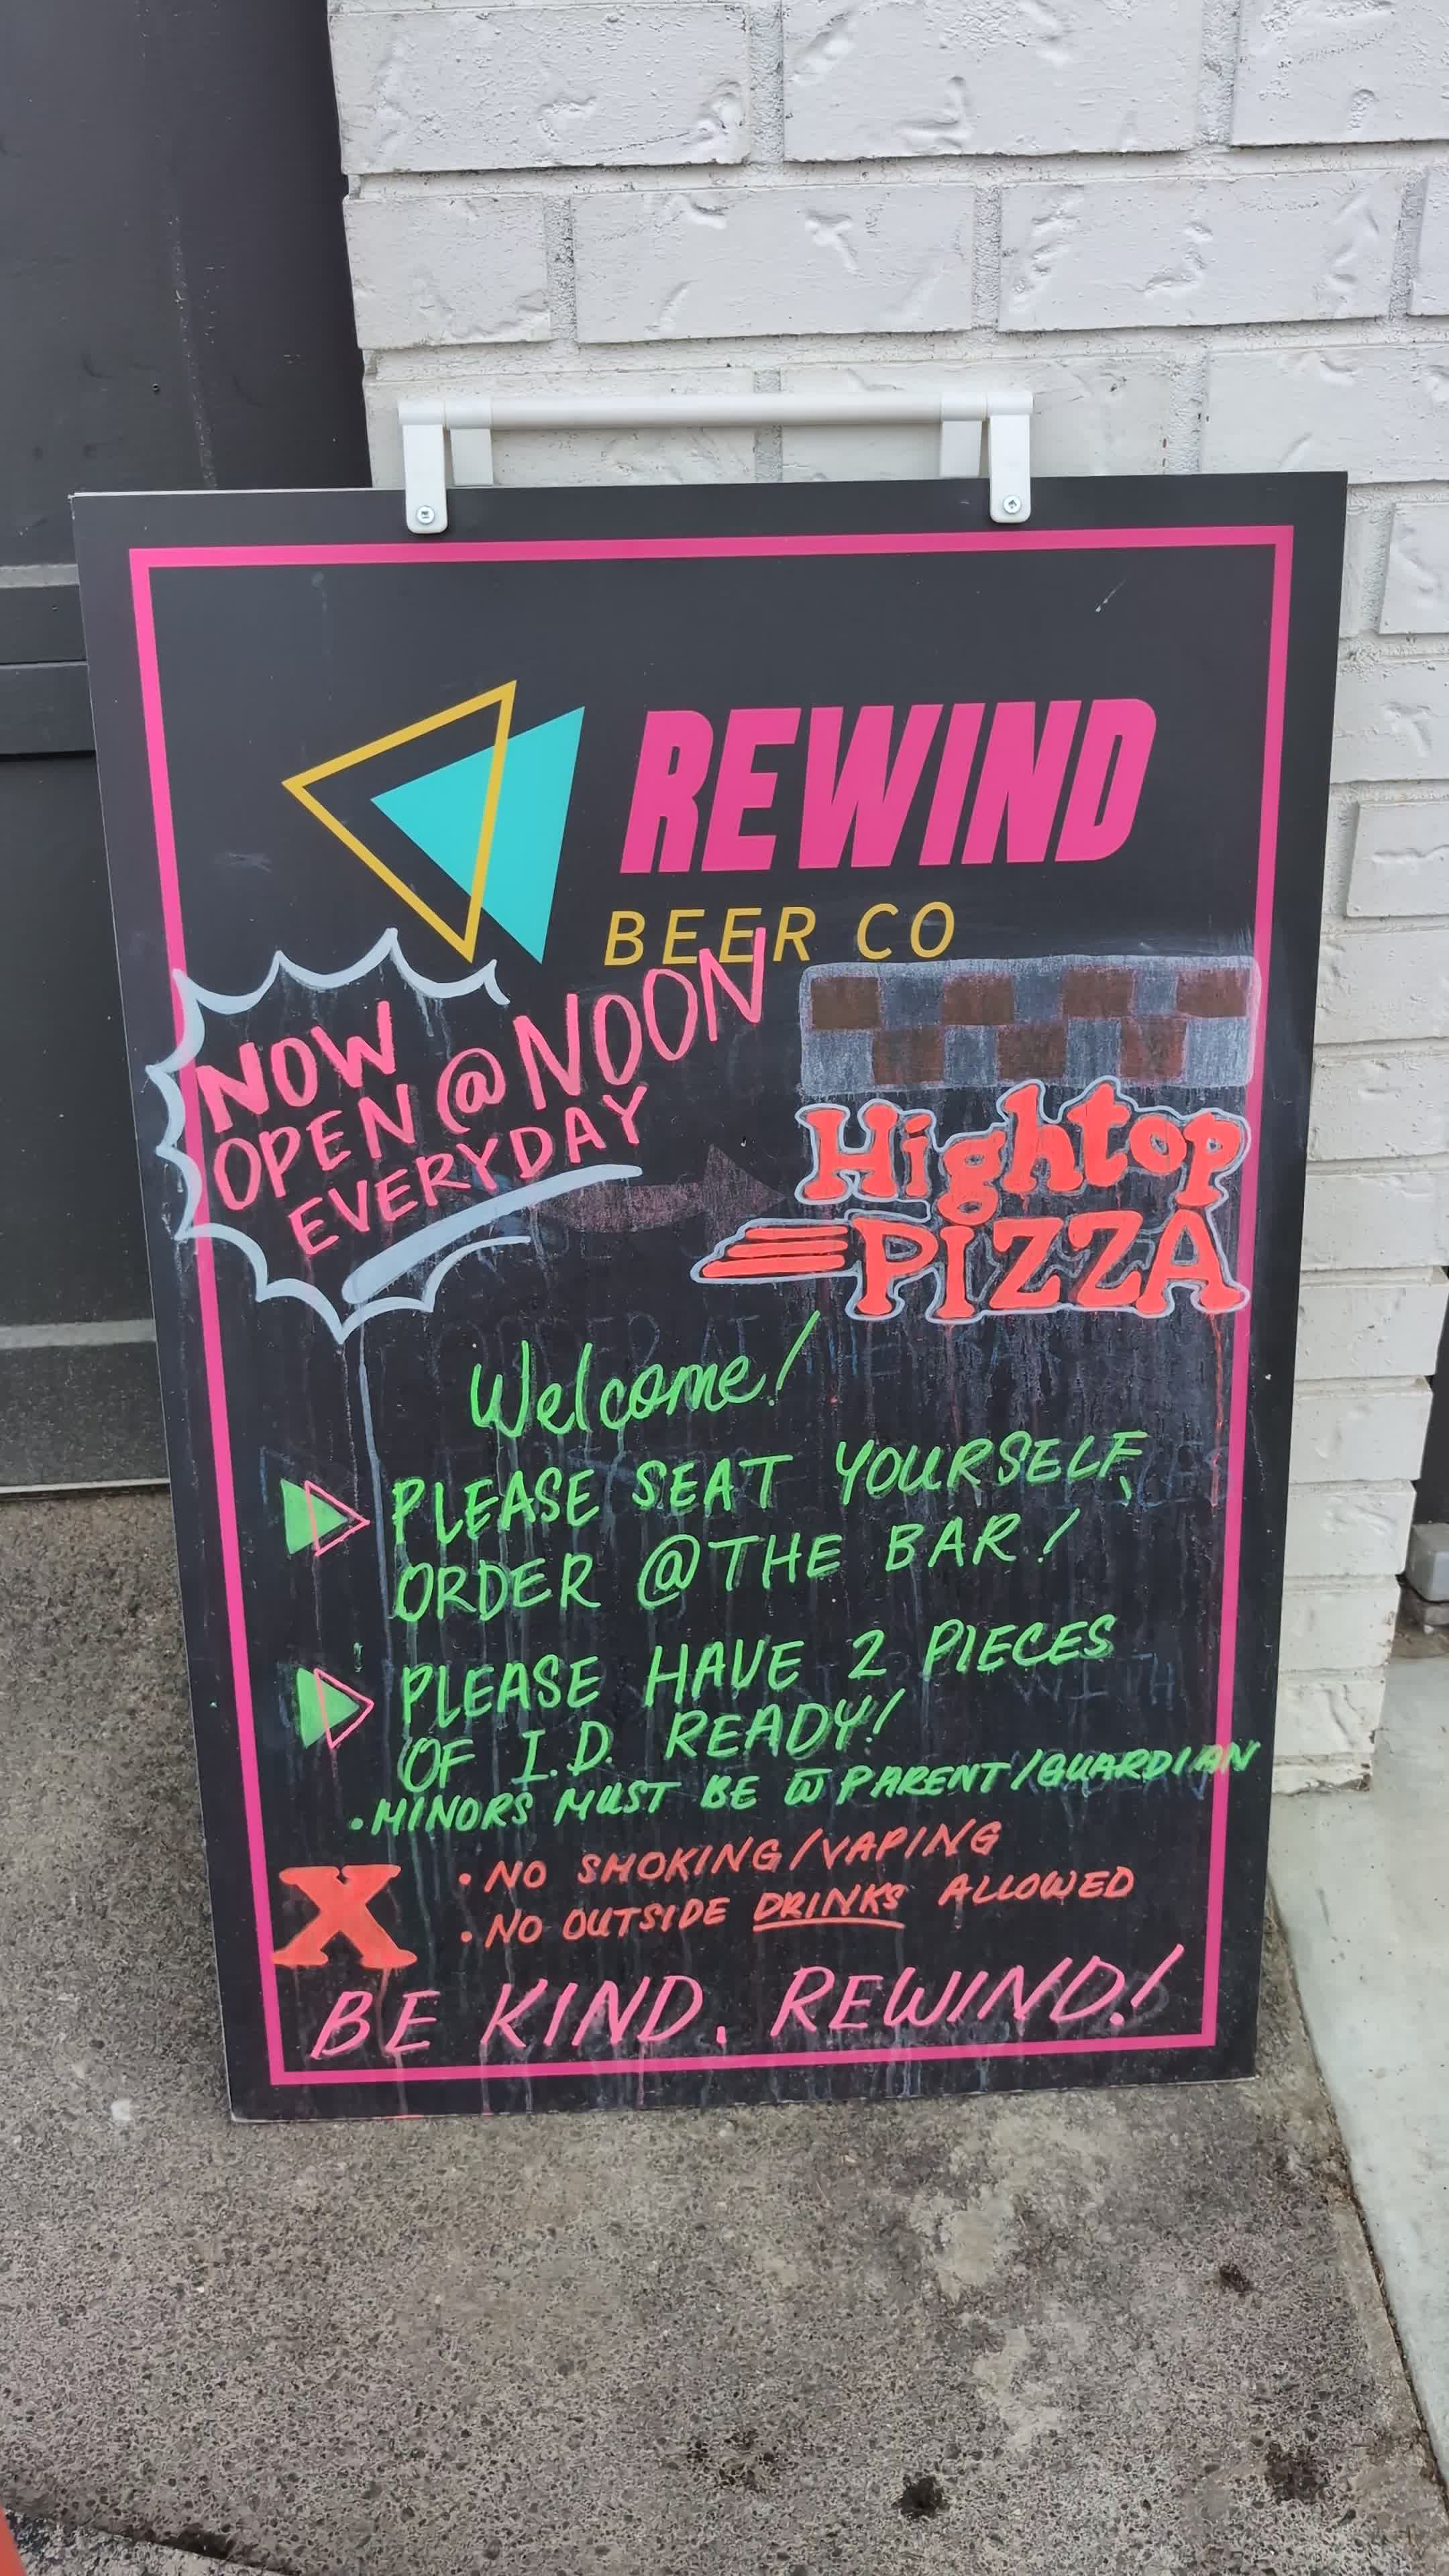 REWIND
BEER CO
NOW
OPEN @ NOON
EVERYDAY
Hightop
PIZZA
Welcome!
PLEASE SEAT YOURSELF,
ORDER @ THE BAR!
PLEASE HAVE 2 PIECES
OF I.D. READY!
• MINORS MUST BE w̅ PARENT/GUARDIAN
X
• NO SMOKING/VAPING
• NO OUTSIDE DRINKS ALLOWED
BE KIND, REWIND!